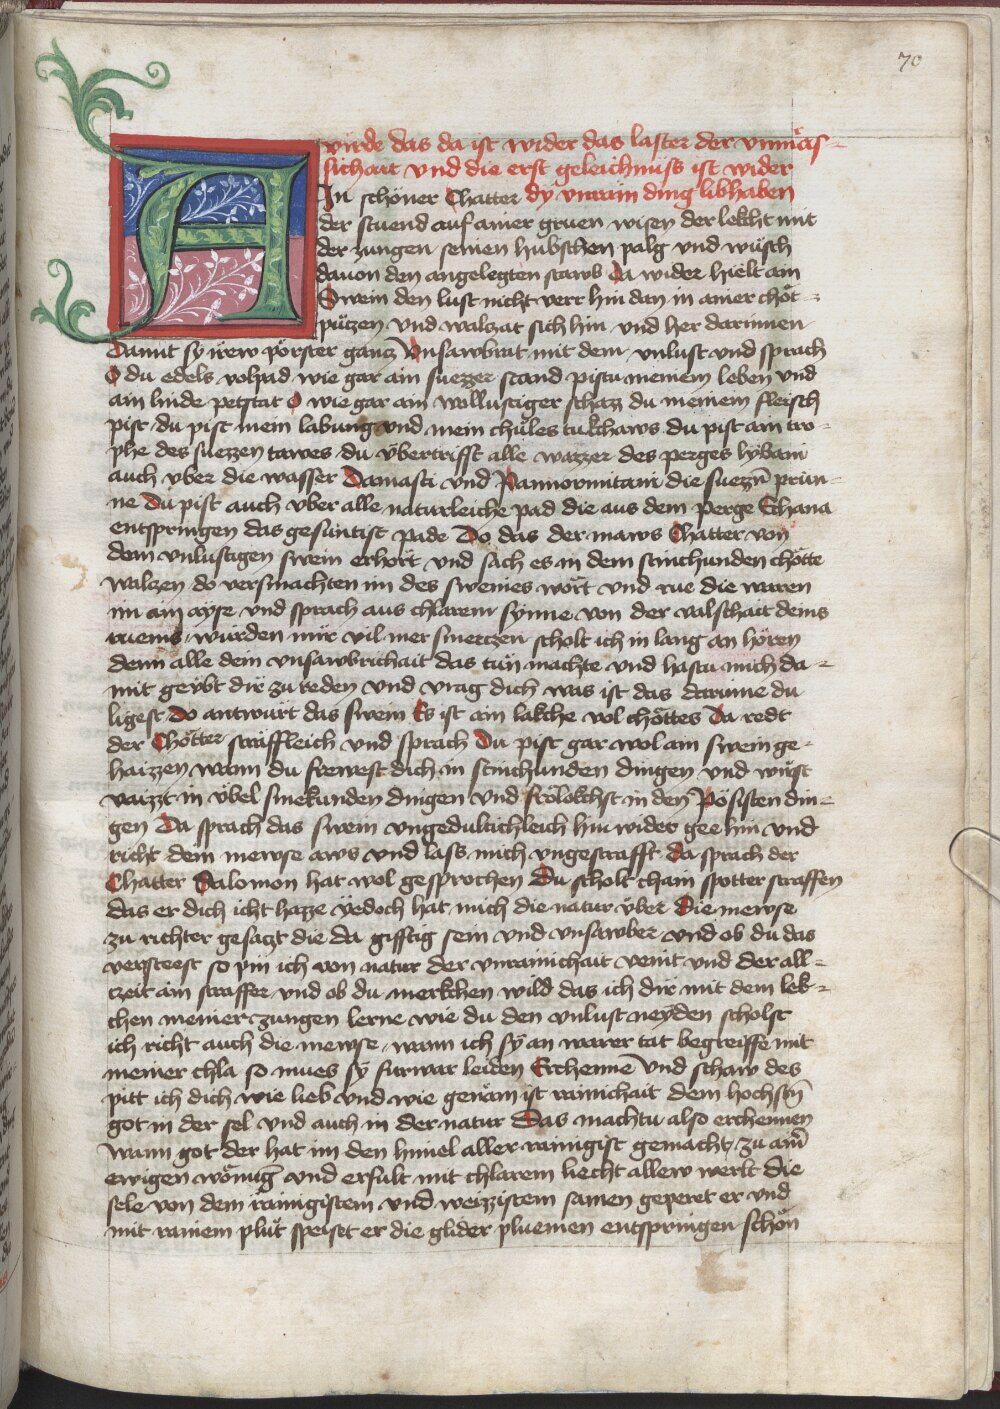 70
würde das da ist wider das laster der vnmäs-
sichait vnd die erst geleichnüss ist wider
In schöner Chatter dy vnrain ding libhaben
der stuend auf ainer gruen wisen der lekcht mit
der zungen seinen hubschen palg vnd wüsch
dauon den angelegten stawb Da wider hielt ain
Swein den lust nicht verr hin dan in ainer chöt-
pützen vnd walzat sich hin vnd her darinnen
Damit sy irew pörster gancz Vnsawbrat mit dem vnlust vnd sprach
O du edels volpad wie gar ain suezzer stand pistu meinem leben vnd
ain linde petstat O wie gar ain wollustiger schacz du meinem fleisch
pist du pist mein labung vnd mein chüles tukchaws du pist ain tro-
phe des suezzen tawes du übertrifft alle wazzer des perges lybani
auch vber die wasser Damasti vnd Pannormitani die suezñ prün-
ne Du pist auch vber alle naturleiche pad die aus dem perge Ethana
entspringen das gesuntist pade Do das der maws Chatter von
dem vnlustigen swein erhört vnd sach es in dem stinchunden chötte
walzen do versmachten im des sweines wört vnd rue die waren
im ain ayse vnd sprach aus chlarem synne von der valschait deins
ruems würden mir vil mer smerczen scholt ich in lang an hören
denn alle dein vnsawbrichait das tün machte vnd hastu mich da-
mit geübt dir zu reden vnd vrag dich was ist das darinne du
ligest Do antwürt das swein Es ist ain lakche vol chöttes Da redt
der Chötter sträffleich vnd sprach Du pist gar wol ain swein ge-
haizzen wann du frewest dich in stinchunden dingen vnd wirst
vaizzt in übel smekunden dingen vnd frölokchst in den Pösisten din-
gen Da sprach das swein vngedultichleich hin wider gee hin vnd
richt dein mewse aws vnd lass mich vngestrafft da sprach der
Chatter Salomon hat wol gesprochen Du scholt chain spotter straffen
das er dich icht hazze yedoch hat mich die natur über Die mewse
zu richter gesaczt die da gifftig sein vnd vnsawber vnd ob du das
versteest so pin ich von natur der vnrainichait veint vnd der all-
czeit ain straffer vnd ob du merkchen wild das ich dir mit dem lek-
chen meiner zungen lerne wie du den vnlust neyden scholst
ich richt auch die mewse wann ich sy an warer tat begreiffe mit
meiner chla so mues sy furwar leiden Erchenne vnd schaw des
pitt ich dich wie lieb vnd wie genäm ist rainichait dem hochstñ
got in der sel vnd auch in der natur Das machtu also erchennen
wann got der hat im den himel aller rainigist gemacht zu aim̄
ewigen wönūg vnd erfult mit chlarem liecht allew werlt die
sele von dem rainigistem vnd weizzistem samen geperet er vnd
mit rainem plüt speiset er die glider pluemen entspringen schön